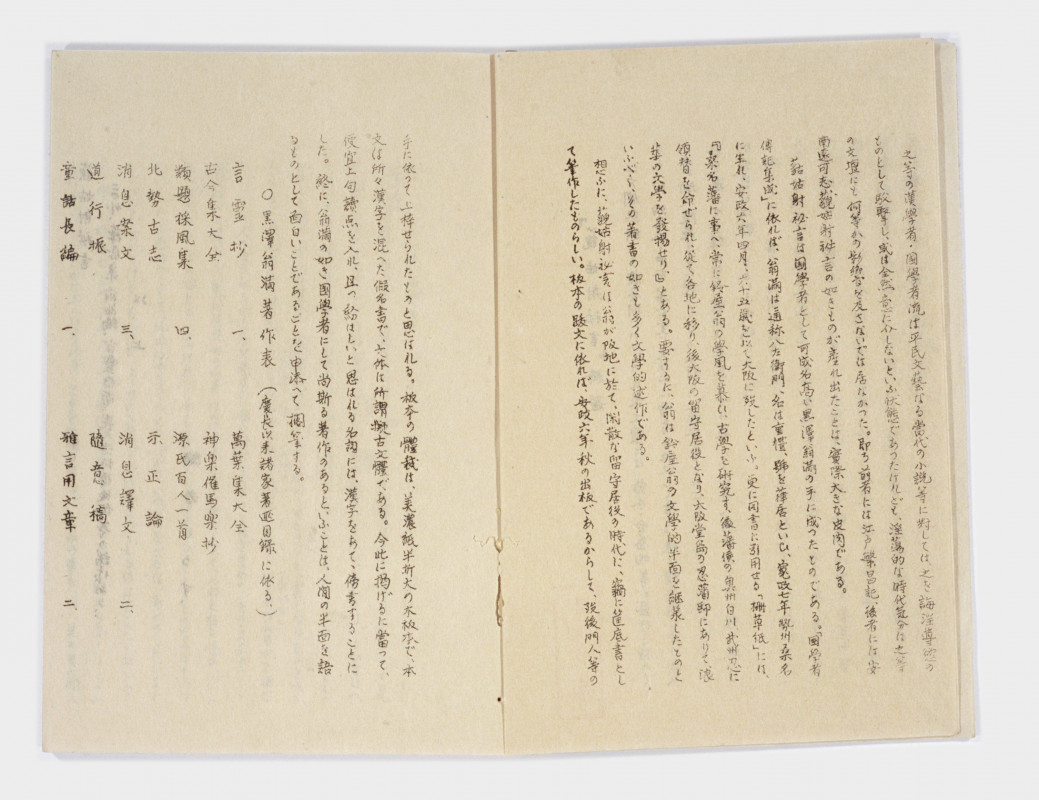 之等の漢學者・國學者流は平民文藝なる當代の小說等に對しては、之を誨淫導慾の
ものとして攻擊し、或は全然意に介しないといふ狀態であつたけれども、淫蕩的な時代氣分は之等
の文壇にも何等かの影響を及さないでは居なかつた。卽ち前者には江戶繁昌記、後者には
藐姑射祕言の如きものが產れ出たことは、實際大きな皮肉である。
藐姑射祕言は國學者として可成名高い黑澤翁滿の手に成つたものである。「國學者
傳記集成」に依れば、翁滿は通稱八左衞門、名は重禮、號を葎居といひ、寬政七年勢州桑名
に生れ、安政六年四月、六十五歲を以て大阪に歿したといふ。更に同書に引用せる「柵草紙」には、
桑名藩に事へ、常に鈴屋翁の學風を慕ひ、古學を硏究す、後藩侯の奧州白川武州忍に
領替を命ぜられし從て各地に移り、後大阪の留守居役となり、大阪堂島の忍藩邸にありて、浪
華の文學を發揚せり、』とある。要するに、翁は鈴屋翁の文學的半面を繼承したものと
いふべく、その著書の如きも多く文學的述作である。
想ふに、藐姑射祕言は翁が阪地に於て、閑散な留守居役の時代に、竊に筐底書とし
て筆作したものらしい。板本の跋文に依れば、安政六年秋の出板であるからして、歿後門人等の
手に依つて上梓せられたものと思はれる。板本の體裁は、美濃紙半折大の木板本で、本
文は所々漢字を混へた假名書で、大体は所謂擬古文體である。今此に揭げるに當つて、
便宜上句讀点を入れ、且つ紛はしいと思はれる名詞には、漢字をあて、傍書することに
した。終に、翁滿の如き國學者にして尚斯る著作のあるといふことは、人間の半面を語
るものとして面白いことであることを申添へて擱筆する。
〇黑澤翁滿著作表(慶長以來諸家著述目錄に依る、)
言靈抄 一、 萬葉集大全
古今集大全 神樂催馬樂抄
類題採風集 四、 源氏百人一首
北勢古志 示正論
消息案文 三、 消息譯文 二、
道行振 隨意稿
童話長編 一、 雅言用文章 二、